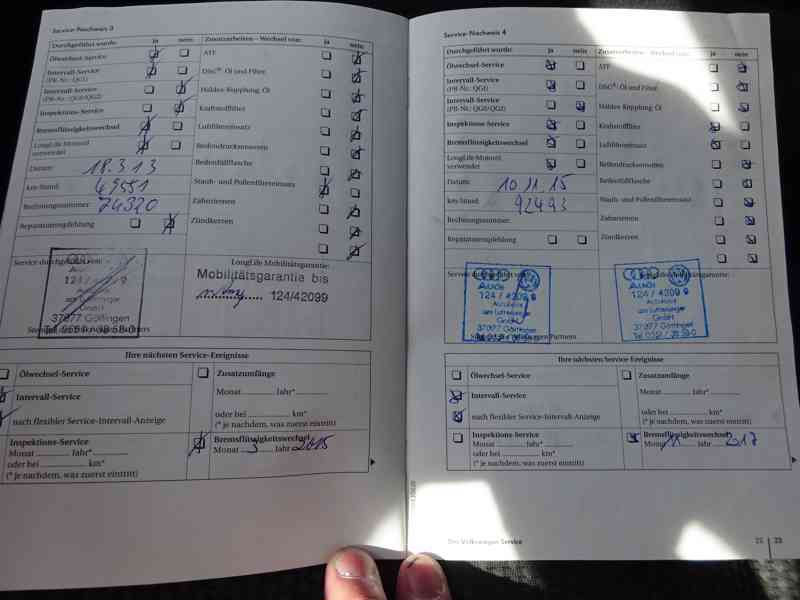 Service-Nachweis 3
Durchgeführt wurde: ja nein
Ölwechsel-Service
Intervall-Service
(PR-Nr.: QG1)
Intervall-Service
(PR-Nr.: QG0/QG2)
Inspektions-Service
Bremsflüssigkeitswechsel
LongLife-Motoröl
verwendet
Datum: 18.3.13
km-Stand: 49551
Rechnungsnummer: 74320
Reparaturempfehlung
Zusatzarbeiten – Wechsel von: ja nein
ATF
DSG®: Öl und Filter
Haldex-Kupplung, Öl
Kraftstofffilter
Luftfiltereinsatz
Reifendruckmessung
Reifenfüllflasche
Staub- und Pollenfiltereinsatz
Zahnriemen
Zündkerzen
Service durchgeführt von:
Audi
124 /
am Lutteranger
GmbH
37077 Göttingen
LongLife Mobilitätsgarantie:
Mobilitätsgarantie bis
124/42099
Ihre nächsten Service-Ereignisse
Ölwechsel-Service
Intervall-Service
nach flexibler Service-Intervall-Anzeige
Inspektions-Service
Monat Jahr*
oder bei km*
(* je nachdem, was zuerst eintritt)
Zusatzumfänge
Monat Jahr*
oder bei km*
(* je nachdem, was zuerst eintritt)
Bremsflüssigkeitswechsel
Monat 3 Jahr 2015
Service-Nachweis 4
Durchgeführt wurde: ja nein
Ölwechsel-Service
Intervall-Service
(PR-Nr.: QG1)
Intervall-Service
(PR-Nr.: QG0/QG2)
Inspektions-Service
Bremsflüssigkeitswechsel
LongLife-Motoröl
verwendet
Datum: 10.11.15
km-Stand: 92493
Rechnungsnummer:
Reparaturempfehlung
Zusatzarbeiten – Wechsel von: ja nein
ATF
DSG®: Öl und Filter
Haldex-Kupplung, Öl
Kraftstofffilter
Luftfiltereinsatz
Reifendruckmessung
Reifenfüllflasche
Staub- und Pollenfiltereinsatz
Zahnriemen
Zündkerzen
Audi
124 / 4209 9
Autohaus
am Lutteranger
GmbH
37077 Göttingen
Audi
124 / 4209 9
Autohaus
am Lutteranger
GmbH
37077 Göttingen
Ihre nächsten Service-Ereignisse
Ölwechsel-Service
Intervall-Service
nach flexibler Service-Intervall-Anzeige
Inspektions-Service
Monat Jahr*
oder bei km*
(* je nachdem, was zuerst eintritt)
Zusatzumfänge
Monat Jahr*
oder bei km*
(* je nachdem, was zuerst eintritt)
Bremsflüssigkeitswechsel
Monat 11 Jahr 2017
Der Volkswagen Service